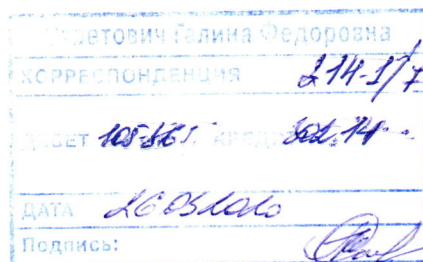 Галина Федоровна
КОРРЕСПОНДЕНЦИЯ 214-1/7
ДЕБЕТ КРЕДИТ 302.14
ДАТА 26052020
Подпись: